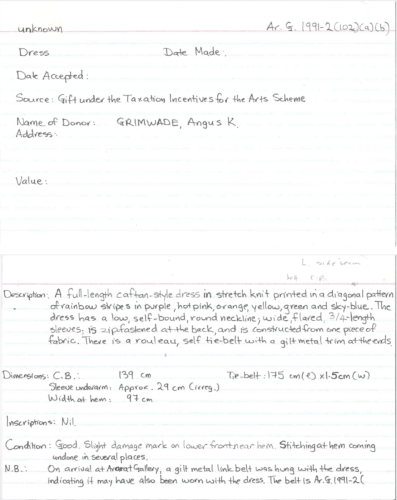 unknown Ar. G. 1991-2(102)(a)(b)
Dress Date Made:.
Date Accepted:
Source: Gift under the Taxation Incentives for the Arts Scheme
Name of Donor: GRIMWADE, Angus K.
Address:
Value:
Description: A full-length caftan-style dress in stretch knit printed in a diagonal pattern
of rainbow stripes in purple, hot pink, orange, yellow, green and sky-blue. The
dress has a low, self-bound, round neckline; wide, flared, 3/4-length
sleeves; is zip fastened at the back, and is constructed from one piece of
fabric. There is a rouleau, self tie-belt with a gilt metal trim at the ends.
Dimensions: C.B.: 139 cm Tie-belt: 175 cm (ℓ) x 1.5cm (w)
Sleeve underarm: Approx. 29 cm (irreg.)
Width at hem: 97 cm
Inscriptions: Nil.
Condition: Good. Slight damage mark on lower front near hem. Stitching at hem coming
undone in several places.
N.B.: On arrival at Ararat Gallery, a gilt metal link belt was hung with the dress,
indicating it may have also been worn with the dress. The belt is Ar.G. 1991-2(